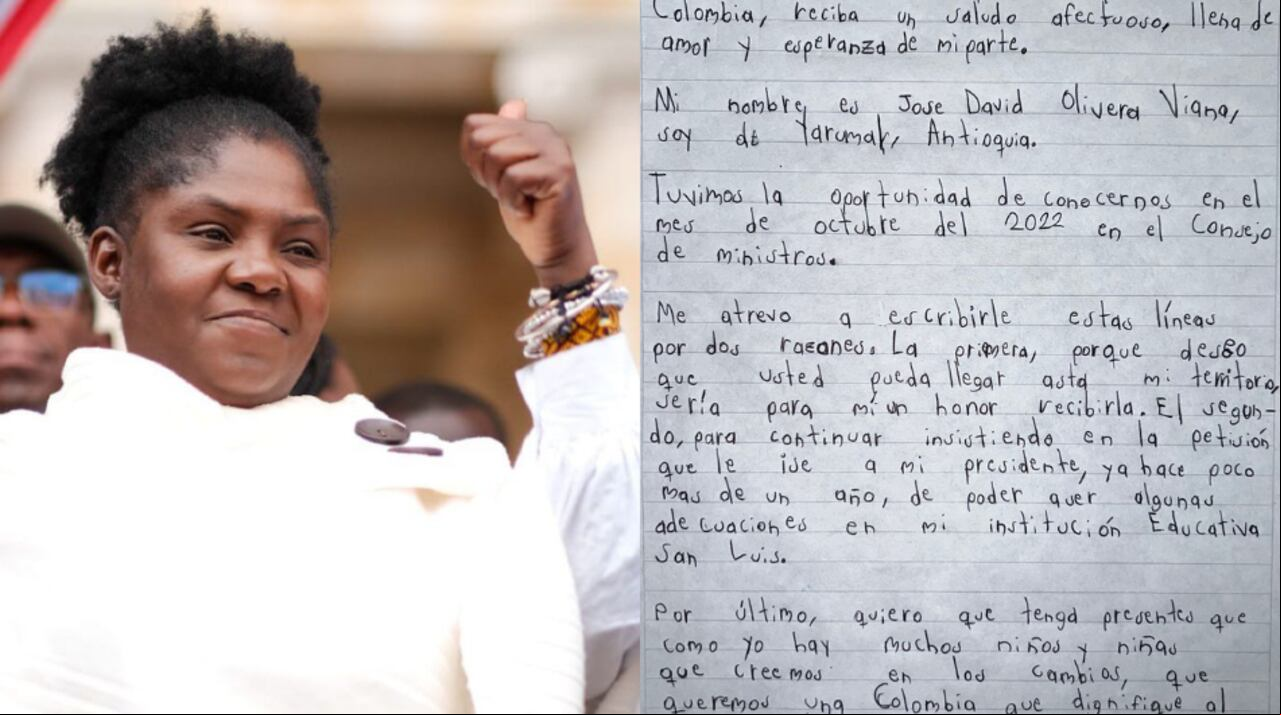 Colombia, reciba un saludo afectuoso, llena de
amor y esperanza de mi parte.
Mi nombre es Jose David Olivera Viana,
soy de Yarumal, Antioquia.
Tuvimos la oportunidad de conocernos en el
mes de octubre del 2022 en el Consejo
de ministros.
Me atrevo a escribirle estas líneas
por dos rasones. La primera, porque deseo
que usted pueda llegar asta mi territorio,
sería para mí un honor recibirla. El segun-
do, para continuar insistiendo en la petisión
que le ise a mi presidente, ya hace poco
mas de un año, de poder aver algunas
adecuaciones en mi institución Educativa
San Luis.
Por último, quiero que tenga presentes que
como yo hay muchos niños y niñas
que creemos en los cambios, que
queremos una Colombia que dignifique al